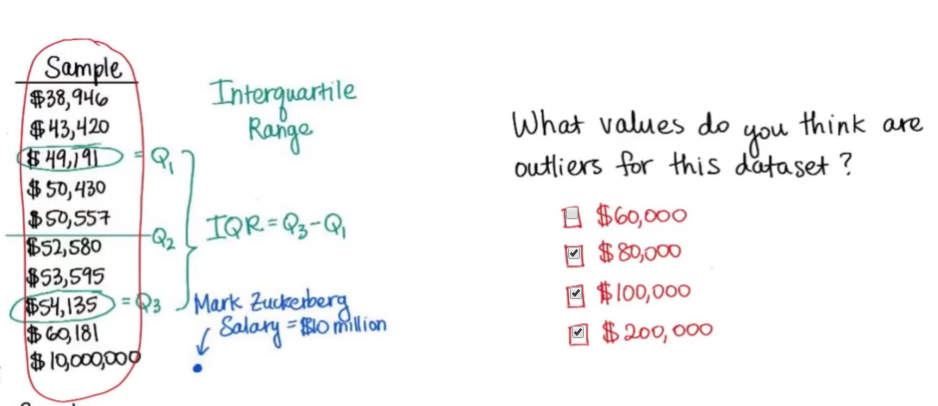 Sample
$38,946
$43,420
$49,191 = Q1
$50,430
$50,557
Q2
$52,580
$53,595
$54,135 = Q3
$60,181
$10,000,000
Interquartile
Range
IQR = Q3 - Q1
Mark Zuckerberg
Salary = $10 million
What values do you think are
outliers for this dataset?
$60,000
$80,000
$100,000
$200,000